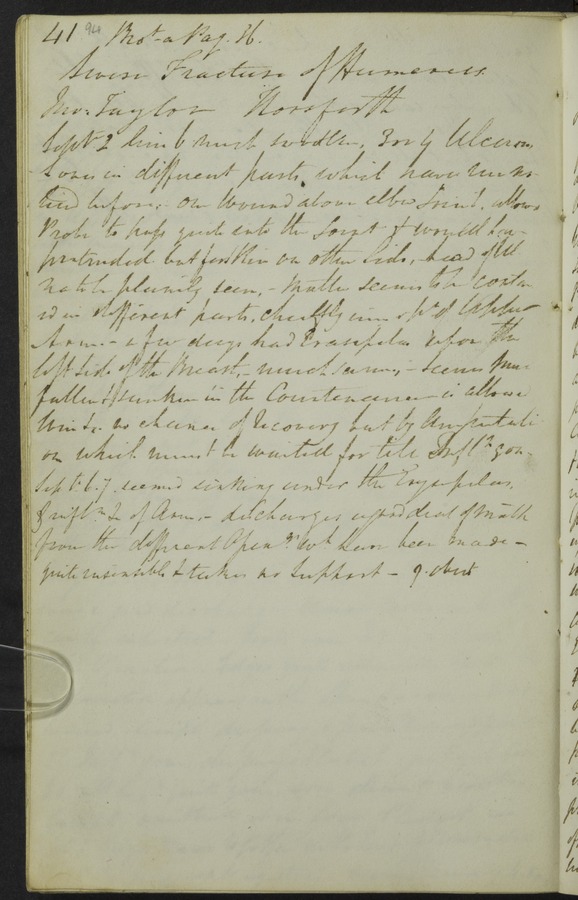 41 94 Brot a Pag. 36.
Severe Fracture of Humerus
Jno. Taylor Horsforth
Sept 2 limb much swollen, Ulcerous
Sores in different parts, which have
before, on Wound above elbow Joint, allows
Probe to pass quite into the Joint & would
protruded but for skin on other side, head of
to be plainly seen, - Matter seems to be contain
ed in different parts, chiefly inner pt. of Upper
Arm - a few days had Erasipelas upon the
left side of the Breast, - much same, - seems
fallen & sunken in the Countenance -
no chance of Recovery but by Amputati
on which must be waited for till Infln. gone
Sept. 6. 7. seemed sinking under the Erysipelas
& of Arm - discharges a good deal of Matter
from the different Opengs. wh. have been made -
quite insensible & takes no support - 9. obiit